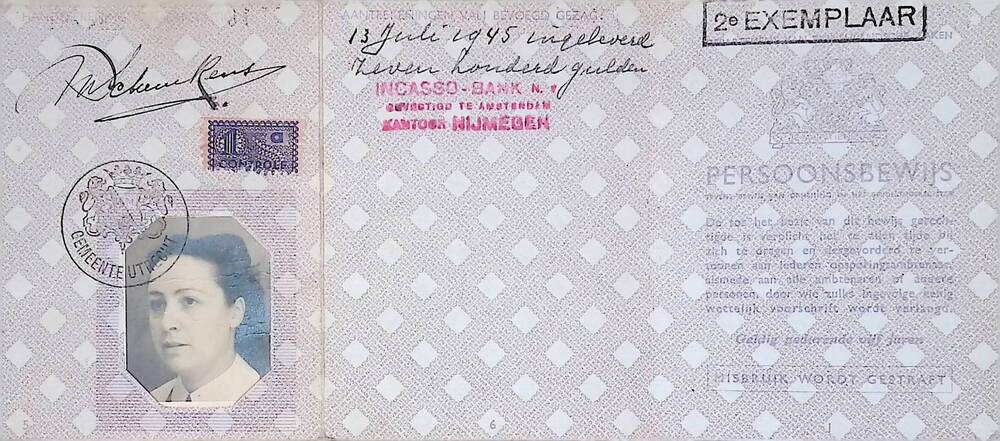 GEMEENTE UTRECHT
CONTROLE
5
AANTEKENINGEN VAN BEVOEGD GEZAG:
13 Juli 1945 ingeleverd
Zeven honderd gulden
INCASSO-BANK N.V
GEVESTIGD TE AMSTERDAM
KANTOOR NIJMEGEN
6
2e EXEMPLAAR
PERSOONSBEWIJS
De tot het bezit van dit bewijs gerech-
tigde is verplicht het te allen tijde bij
zich te dragen en desgevorderd te ver-
toonen aan iederen opsporingsambtenaar,
alsmede aan alle ambtenaren of andere
personen, door wie zulks ingevolge eenig
wettelijk voorschrift wordt verlangd.
Geldig gedurende vijf jaren
MISBRUIK WORDT GESTRAFT
1